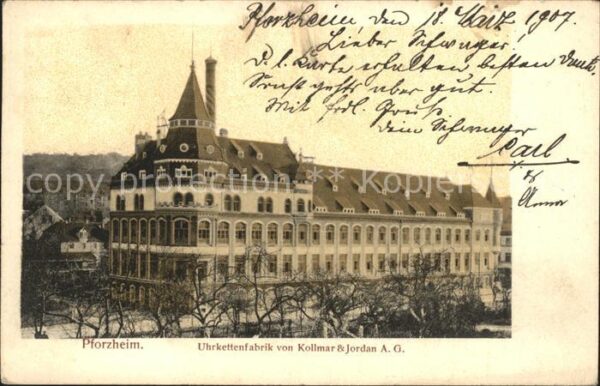 Pforzheim, den 18. März 1907.
Lieber Schwager.
D. l. Karte erhalten besten Dank.
Sonst gehts aber gut.
Mit frdl. Gruss
dein Schwager
Carl
Anna
Copyright Kopierschutz
Pforzheim.
Uhrkettenfabrik von Kollmar & Jordan A. G.